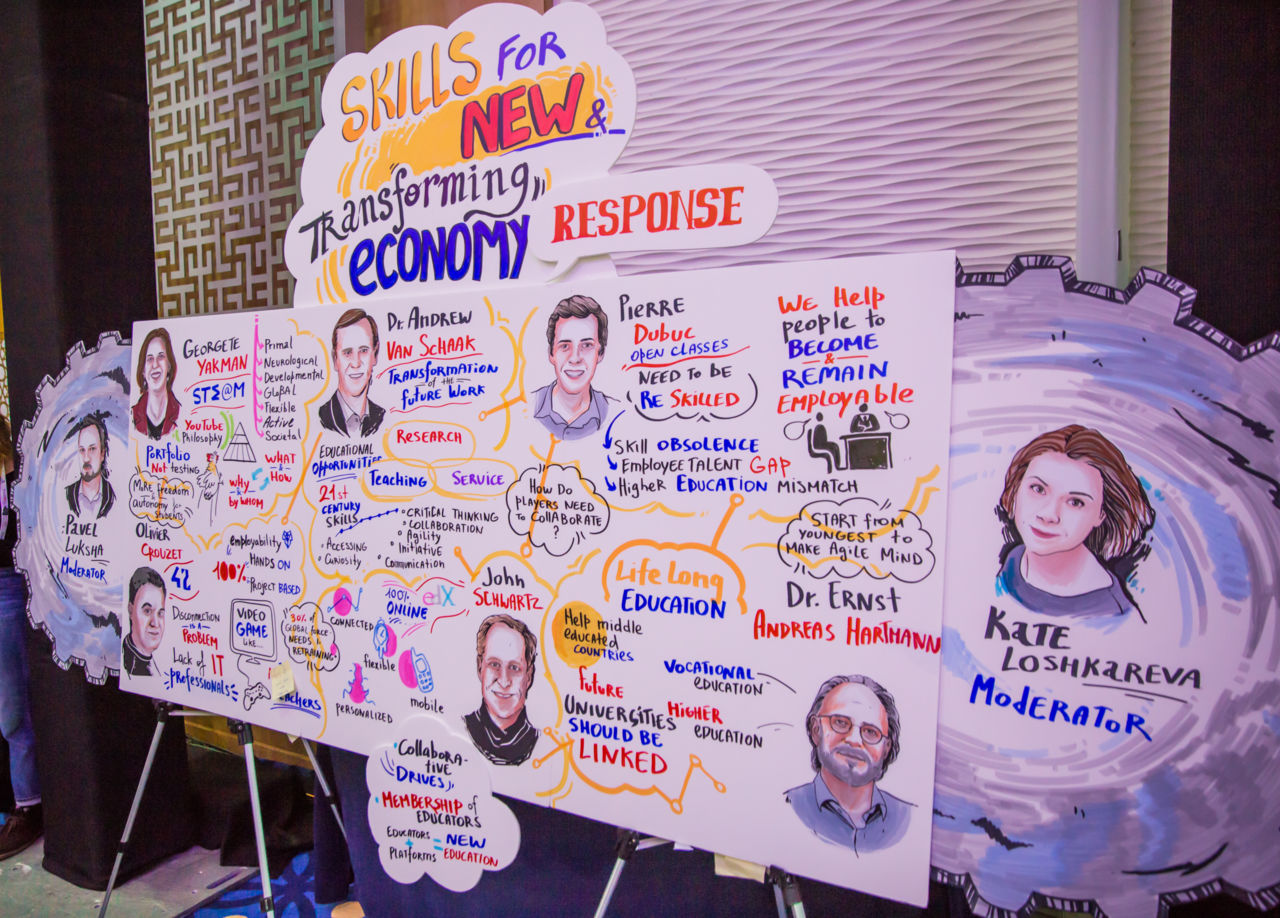 SKILLS FOR
NEW &
Transforming
ECONOMY
RESPONSE
PAVEL
LUKSHA
MODERATOR
GEORGETE
YAKMAN
STΣ@M
Primal
Neurological
Developmental
GloBAL
Flexible
Active
Societal
YouTube
Philosophy
PORTFOLIO
Not testing
More freedom
&
Autonomy for
STUDENTS
WHAT
&
How
WHY
&
by WHOM
OLIVIER
CROUZET
42
employability
100%
HANDS ON
PROJECT BASED
DISCONNECTION
IS A
PROBLEM
Lack of IT
professionals
VIDEO
GAME
LIKE...
30% of
GLOBAL FORCE
NEEDS
RETRAINING
Dr. ANDREW
VAN SCHAAK
TRANSFORMATION
OF THE
FUTURE WORK
EDUCATIONAL
OPPORTUNITIES
RESEARCH
Teaching
SERVICE
21st
CENTURY
SKILLS
ACCESSING
Curiosity
CRITICAL THINKING
COLLABORATION
Agility
Initiative
Communication
100%
ONLINE
edX
CONNECTED
flexible
PERSONALIZED
mobile
John
SCHWARTZ
Collabora-
tive
DRIVES
MEMBERSHIP of
EDUCATORS
EDUCATORS
+
PlatforMs
= NEW
EDUCATION
PIERRE
DUBUC
OPEN CLASSES
NEED TO BE
RE SKILLED
Skill OBSOLENCE
EMPLOYEE TALENT GAP
HigHeR EDUCATION MISMATCH
How Do
PLAYERS NEED
to CollABORATE
?
WE HElp
people to
BECOME
&
REMAIN
EMPloyAble
Life Long
EDUCATION
Help middle
educated
COUNTRIES
future
UNIVERSITIES
SHOULD BE
LINKED
VOCATIONAL
EDUCATION
HIGHER
EDUCATION
START from
YOUNGEST to
MAKE AgilE MIND
Dr. ERNST
ANDREAS HARTMANN
KATE
LOSHKAREVA
MODERATOR